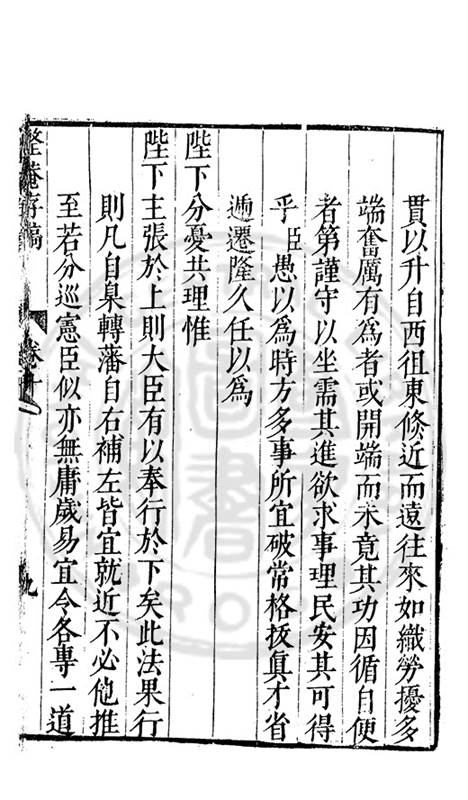 貫以升自西徂東倏近而遠往來如織勞擾多
端奮厲有為者或開端而未竟其功因循自便
者第謹守以坐需其進欲求事理民安其可得
乎臣愚以為時方多事所宜破常格拔真才省
遞遷隆久任以為
陛下分憂共理惟
陛下主張於上則大臣有以奉行於下矣此法果行
則凡自臬轉藩自右補左皆宜就近不必他推
至若分巡憲臣似亦無庸歲易宜令各專一道
庵存稿
九